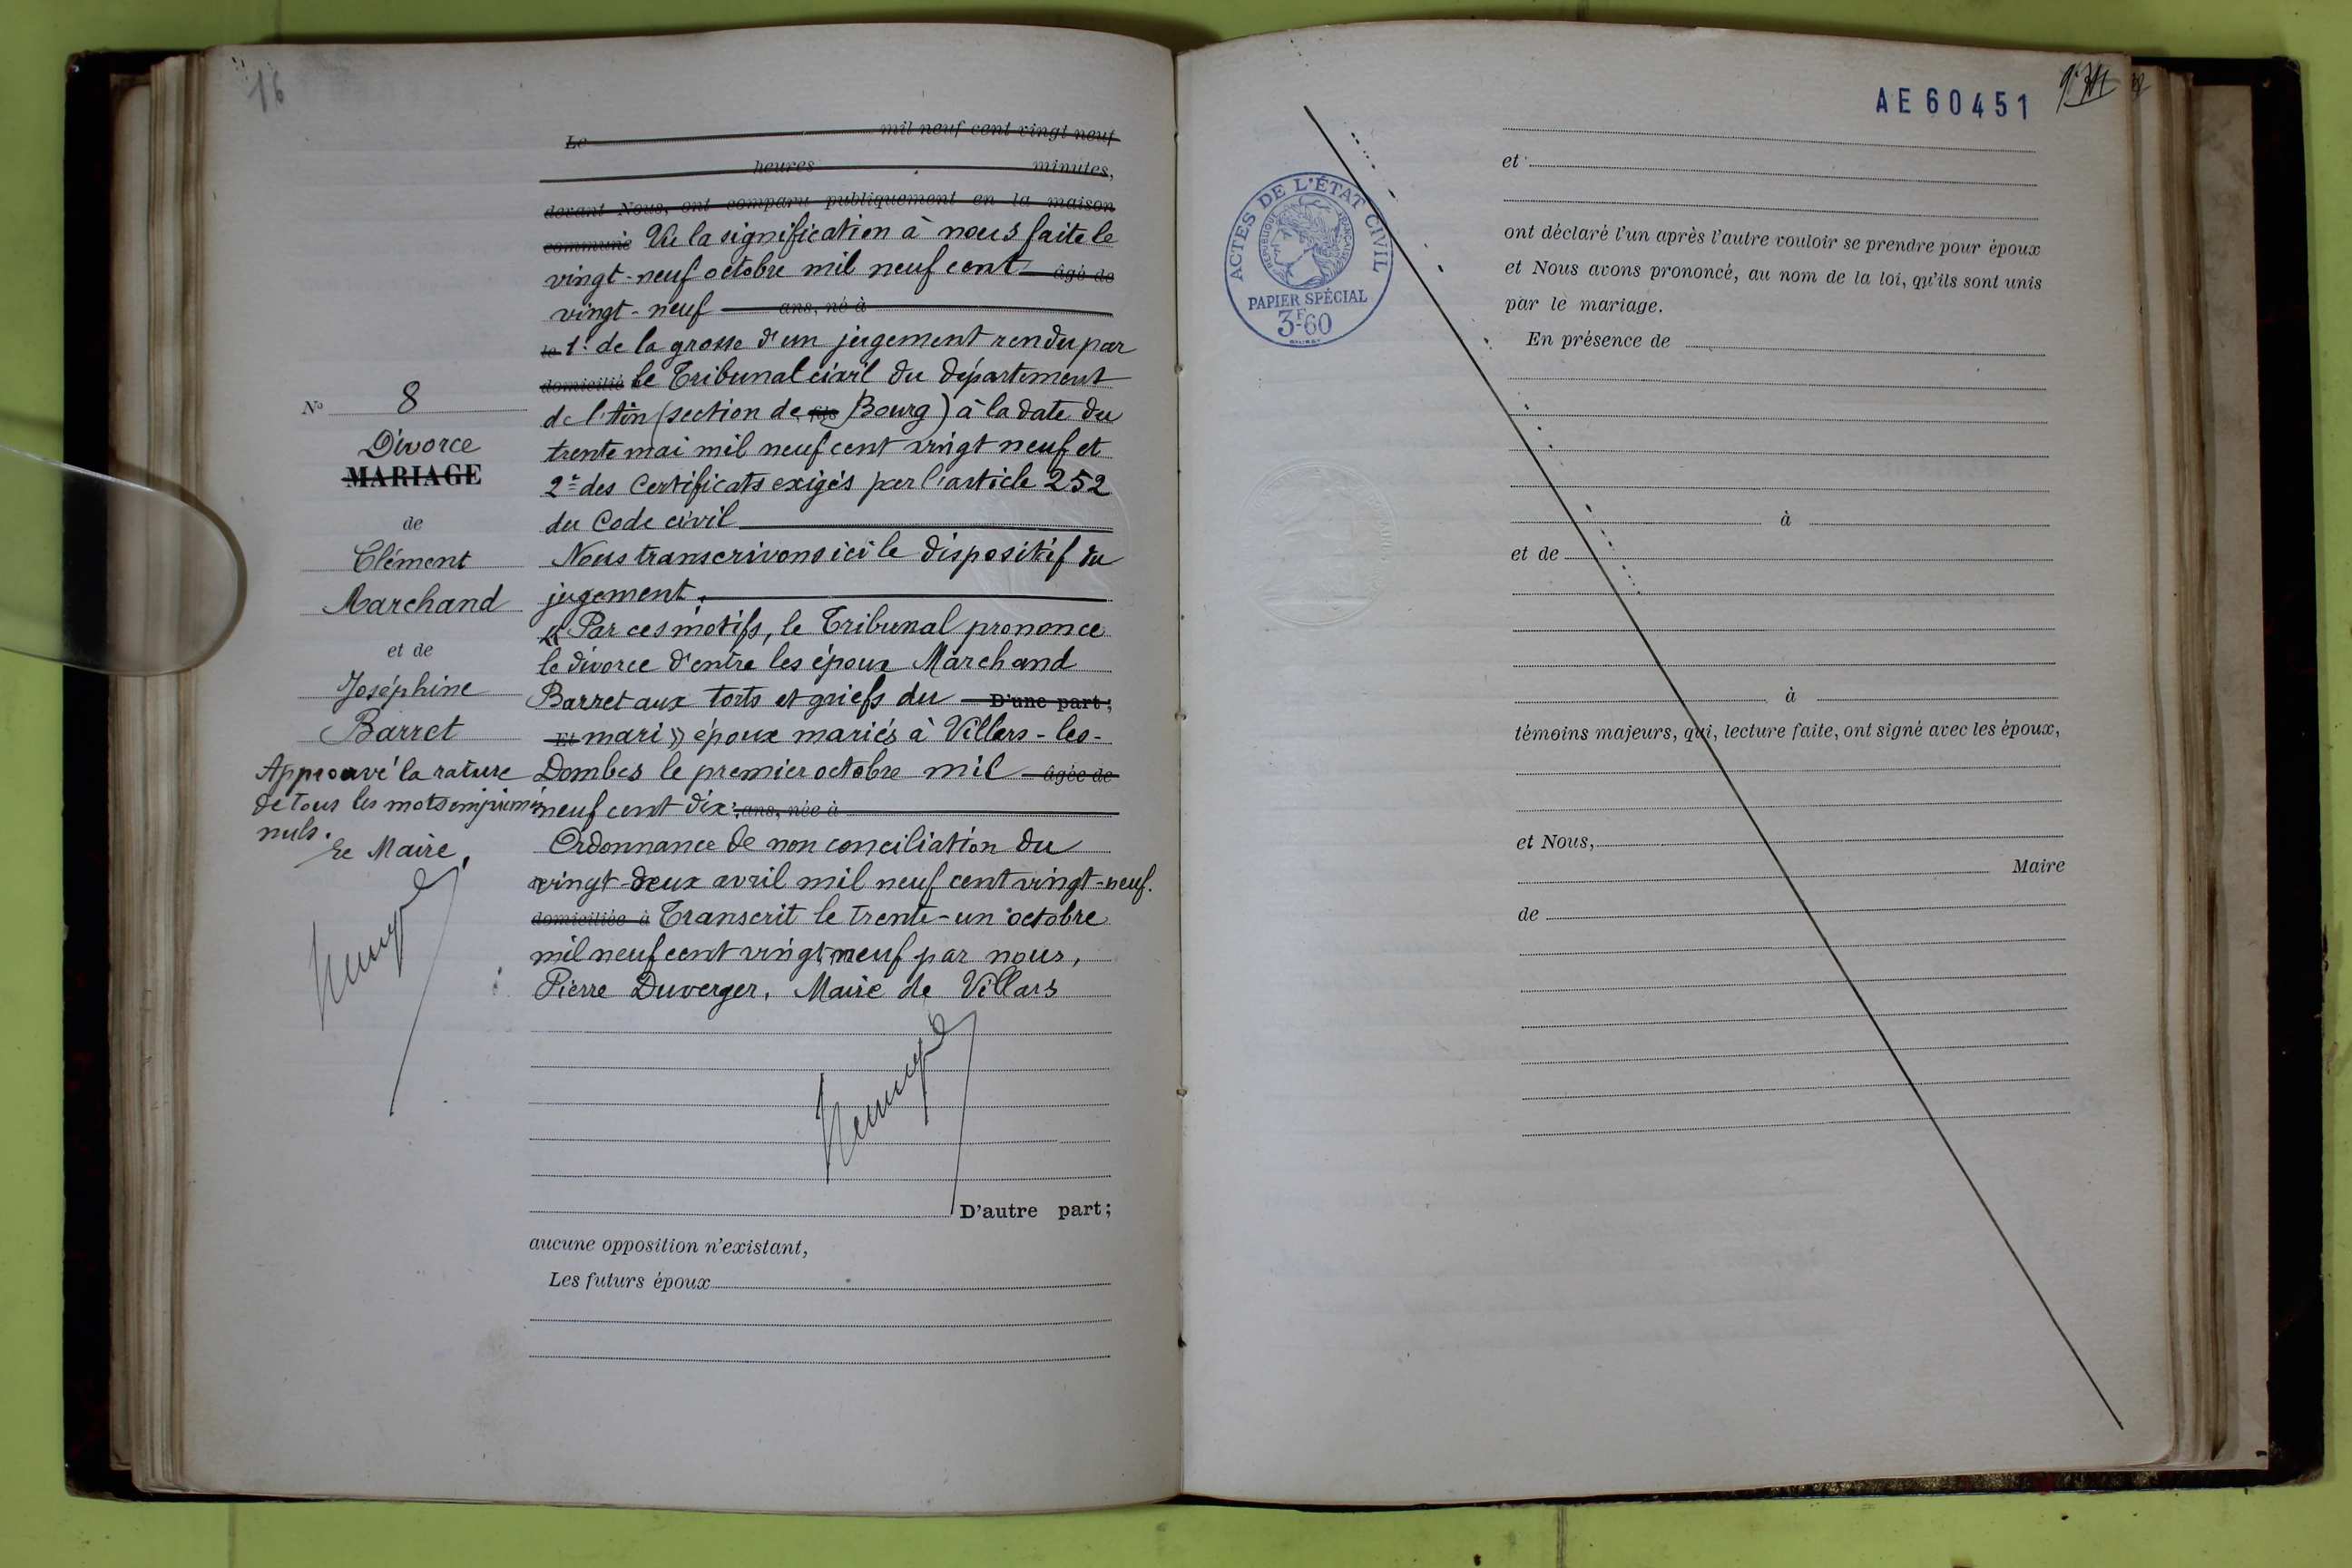 16
Le mil neuf cent vingt neuf
heures minutes,
devant Nous, ont comparu publiquement en la maison
commune Vu la signification à nous faite le
vingt-neuf octobre mil neuf cent âgé de
vingt-neuf ans, né à
le 1º de la grosse d'un jugement rendu par
domicilié le Tribunal civil du département
de l'Ain (section de fils Bourg) à la date du
trente mai mil neuf cent vingt neuf et
2º des Certificats exigés par l'article 252
du Code civil
Nous transcrivons ici le dispositif du
jugement.
« Par ces motifs, le Tribunal prononce
le divorce d'entre les époux Marchand
Barret aux torts et griefs du D'une part;
Et mari » époux mariés à Villars-les-
Dombes le premier octobre mil âgée de
neuf cent dix. ans, née à
Ordonnance de non conciliation du
vingt-deux avril mil neuf cent vingt-neuf.
domiciliée à Transcrit le trente-un octobre
mil neuf cent vingt neuf par nous,
Pierre Duverger, Maire de Villars
D'autre part;
aucune opposition n'existant,
Les futurs époux
No 8
Divorce
MARIAGE
de
Clément
Marchand
et de
Joséphine
Barret
Approuvé la rature
de tous les mots imprimés
nuls.
Le Maire,
AE60451
et
ont déclaré l'un après l'autre vouloir se prendre pour époux
et Nous avons prononcé, au nom de la loi, qu'ils sont unis
par le mariage.
En présence de
à
et de
à
témoins majeurs, qui, lecture faite, ont signé avec les époux,
et Nous,
Maire
de
ACTES DE L'ÉTAT CIVIL
RÉPUBLIQUE FRANÇAISE
PAPIER SPÉCIAL
3F60